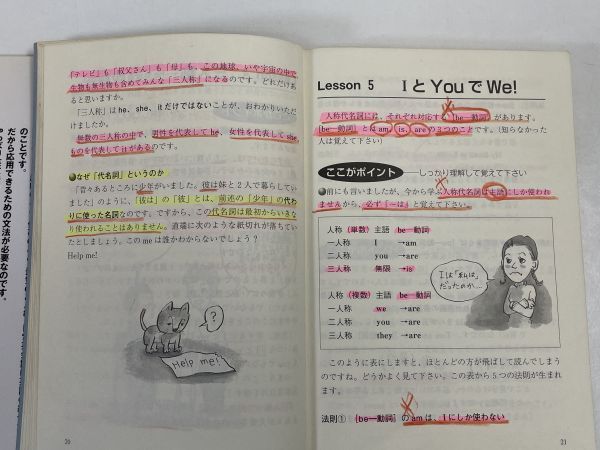 のことです。
だから応用できるための文法が必要なのです。
「テレビ」も「叔父さん」も「母」も、この地球、いや宇宙の中で
生物も無生物も含めてみんな「三人称」になるのです。どれだけあ
ると思いますか。
「三人称」はhe、she、itだけではないことが、おわかりいただ
けましたか。
無数の三人称の中で、男性を代表してhe、女性を代表してshe、
ものを代表してitがあるのです。
●なぜ「代名詞」というのか
「昔々あるところに少年がいました。彼は妹と2人で暮らしてい
ました」のように、「彼は」の「彼」とは、前述の「少年」の代わ
りに使った名詞なのです。ですから、この代名詞は最初からいきな
り使われることはありません。道端に次のような紙切れが落ちてい
たとしましょう。このmeは誰かわからないでしょう？
Help me!
?
Help me!
20
Lesson 5 I と You で We!
人称代名詞には、それぞれ対応する[be―動詞]があります。
[be―動詞]とはam、is、areの3つのことです。(知らなかった
人は覚えて下さい)
ここがポイント――しっかり理解して覚えて下さい
●前にも言いましたが、今から学ぶ人称代名詞は主語にしか使われ
ませんから、必ず「―は」と覚えて下さい。
人称 (単数) 主語 be―動詞
一人称 I →am
二人称 you →are
三人称 無限 →is
人称 (複数) 主語 be―動詞
一人称 we →are
二人称 you →are
三人称 they →are
Iは「私は」
だったのか…
このように表にしますと、ほとんどの方が飛ばして読んでしまう
のですね。どうかよく見て下さい。この表から5つの法則が生まれ
ます。
法則① [be―動詞]のamは、Iにしか使わない
21